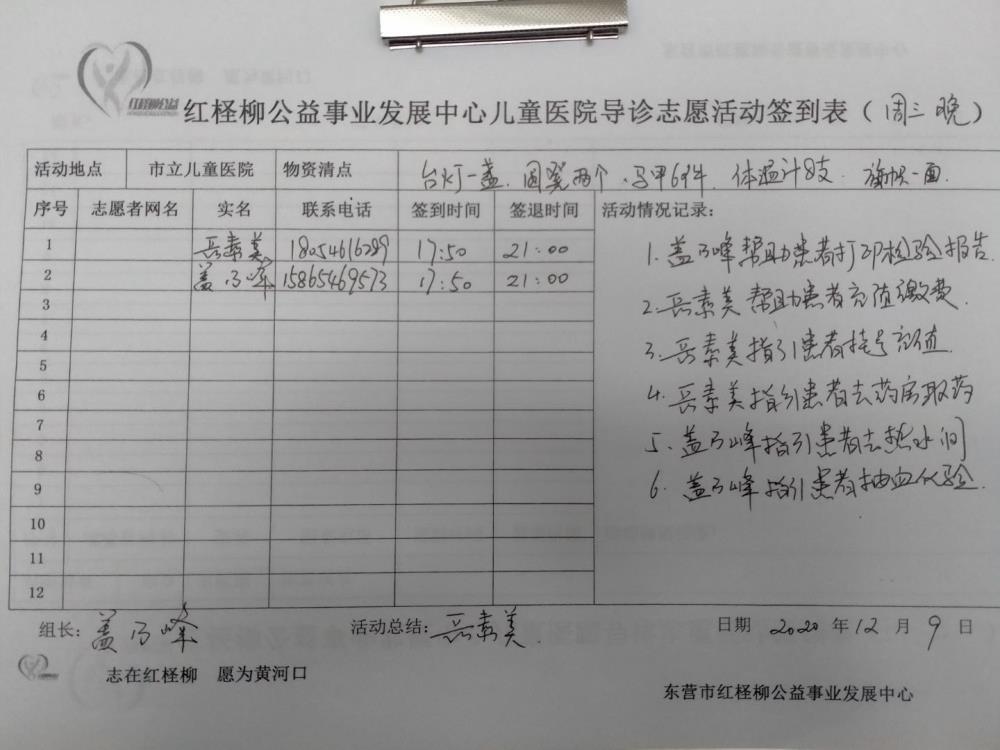 红柽柳公益事业发展中心儿童医院导诊志愿活动签到表（周三晚）
活动地点 市立儿童医院 物资清点 台灯一盏.圆凳两个.马甲6件.体温计8支.旗帜一面.
序号 志愿者网名 实名 联系电话 签到时间 签退时间 活动情况记录：
1 岳素美 18054616289 17:50 21:00
2 盖乃峰 15865469573 17:50 21:00
3
4
5
6
7
8
9
10
11
12
1.盖乃峰帮助患者打印检验报告.
2.岳素美帮助患者充值缴费.
3.岳素美指引患者挂号充值.
4.岳素美指引患者去药房取药
5.盖乃峰指引患者去热水间
6.盖乃峰指引患者抽血化验.
组长：盖乃峰 活动总结：岳素美. 日期 2020 年 12 月 9 日
志在红柽柳 愿为黄河口
东营市红柽柳公益事业发展中心